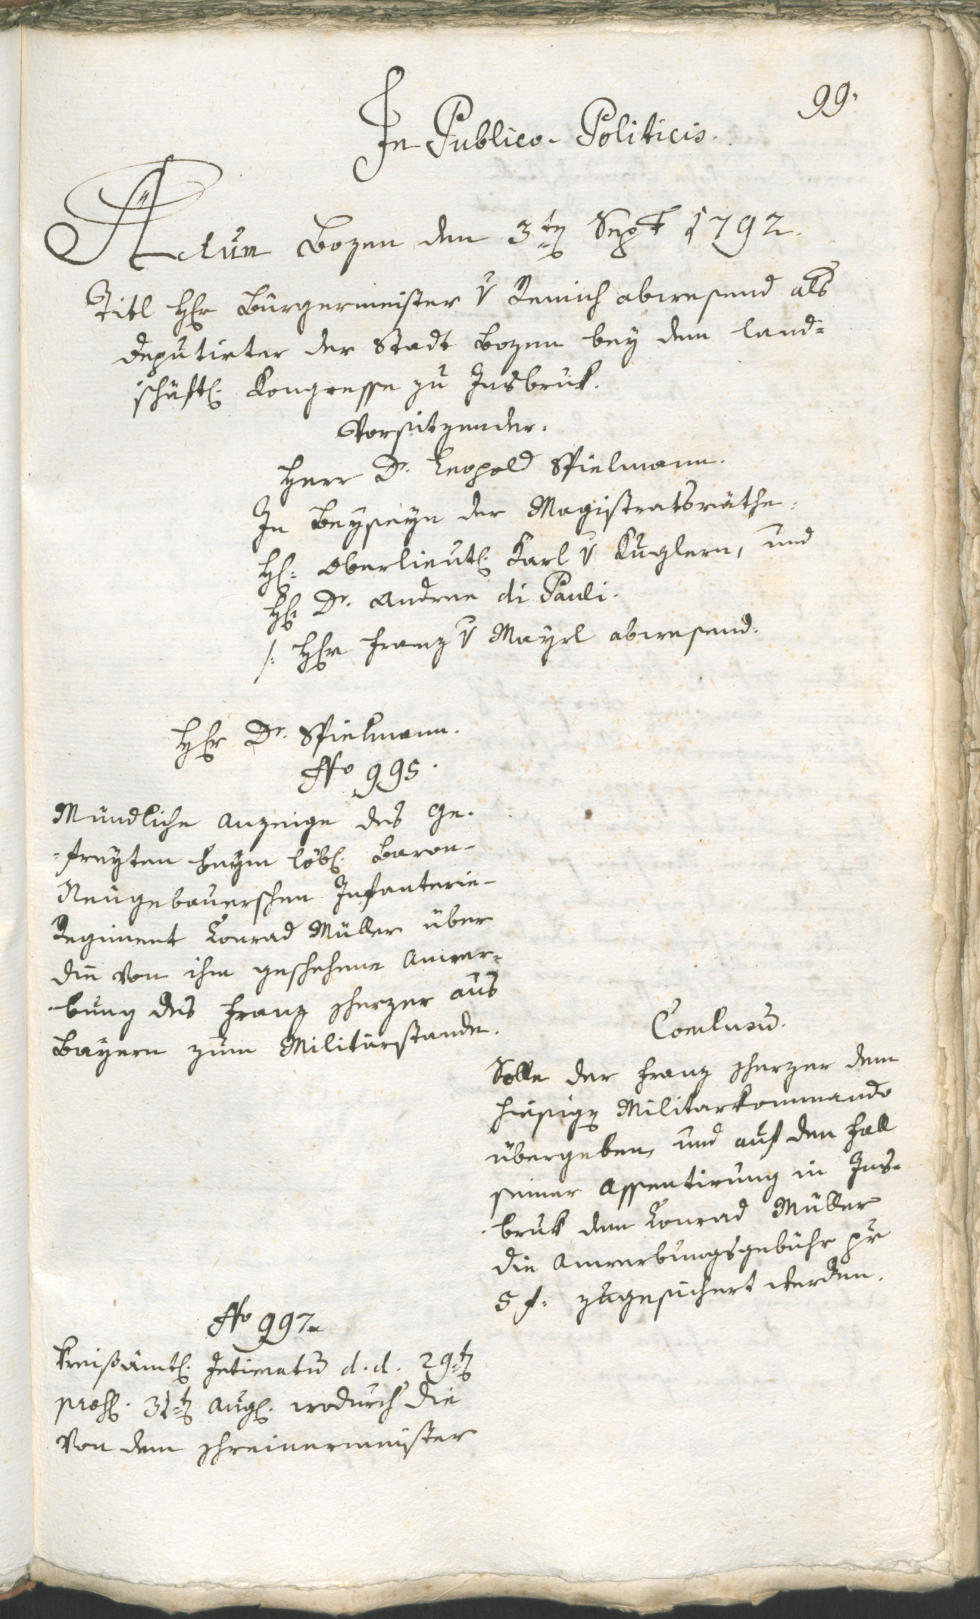 99.
In Publico-Politicis.
Actum Bozen den 3ten Sept 1792.
Titl Hr Bürgermeister v Remich abwesend als
deputirter der Stadt Bozen bey dem land-
schäftl. Kongresse zu Insbruk.
Vorsitzender.
Herr Dr. Leopold Spielmann.
In Beyseyn der Magistratsräthe.
H: Oberlieut: Karl v Kuglern, und
Hr Dr. Andree di Pauli.
/: Hr Franz v Mayrl abwesend.
Hr Dr. Spielmann.
No 995.
Mündliche Anzeige des Ge-
freyten beym löbl. Baron-
Neugebauerschen Infanterie-
Regiment Konrad Müller über
die von ihm geschehene Anwer-
bung des Franz Scherzer aus
Bayern zum Militärstande.
Conclusum.
Solle der Franz Scherzer dem
hiesigen Militarkommando
übergeben, und auf den Fall
seiner Assentirung in Ins-
bruk dem Konrad Müller
die Anwerbungsgebühr pr
5 f. zugesichert werden.
No 997.
Kreisämtl. Intimatum d. d. 29ten
præs. 31ten Aug. wodurch die
von dem Schreinermeister